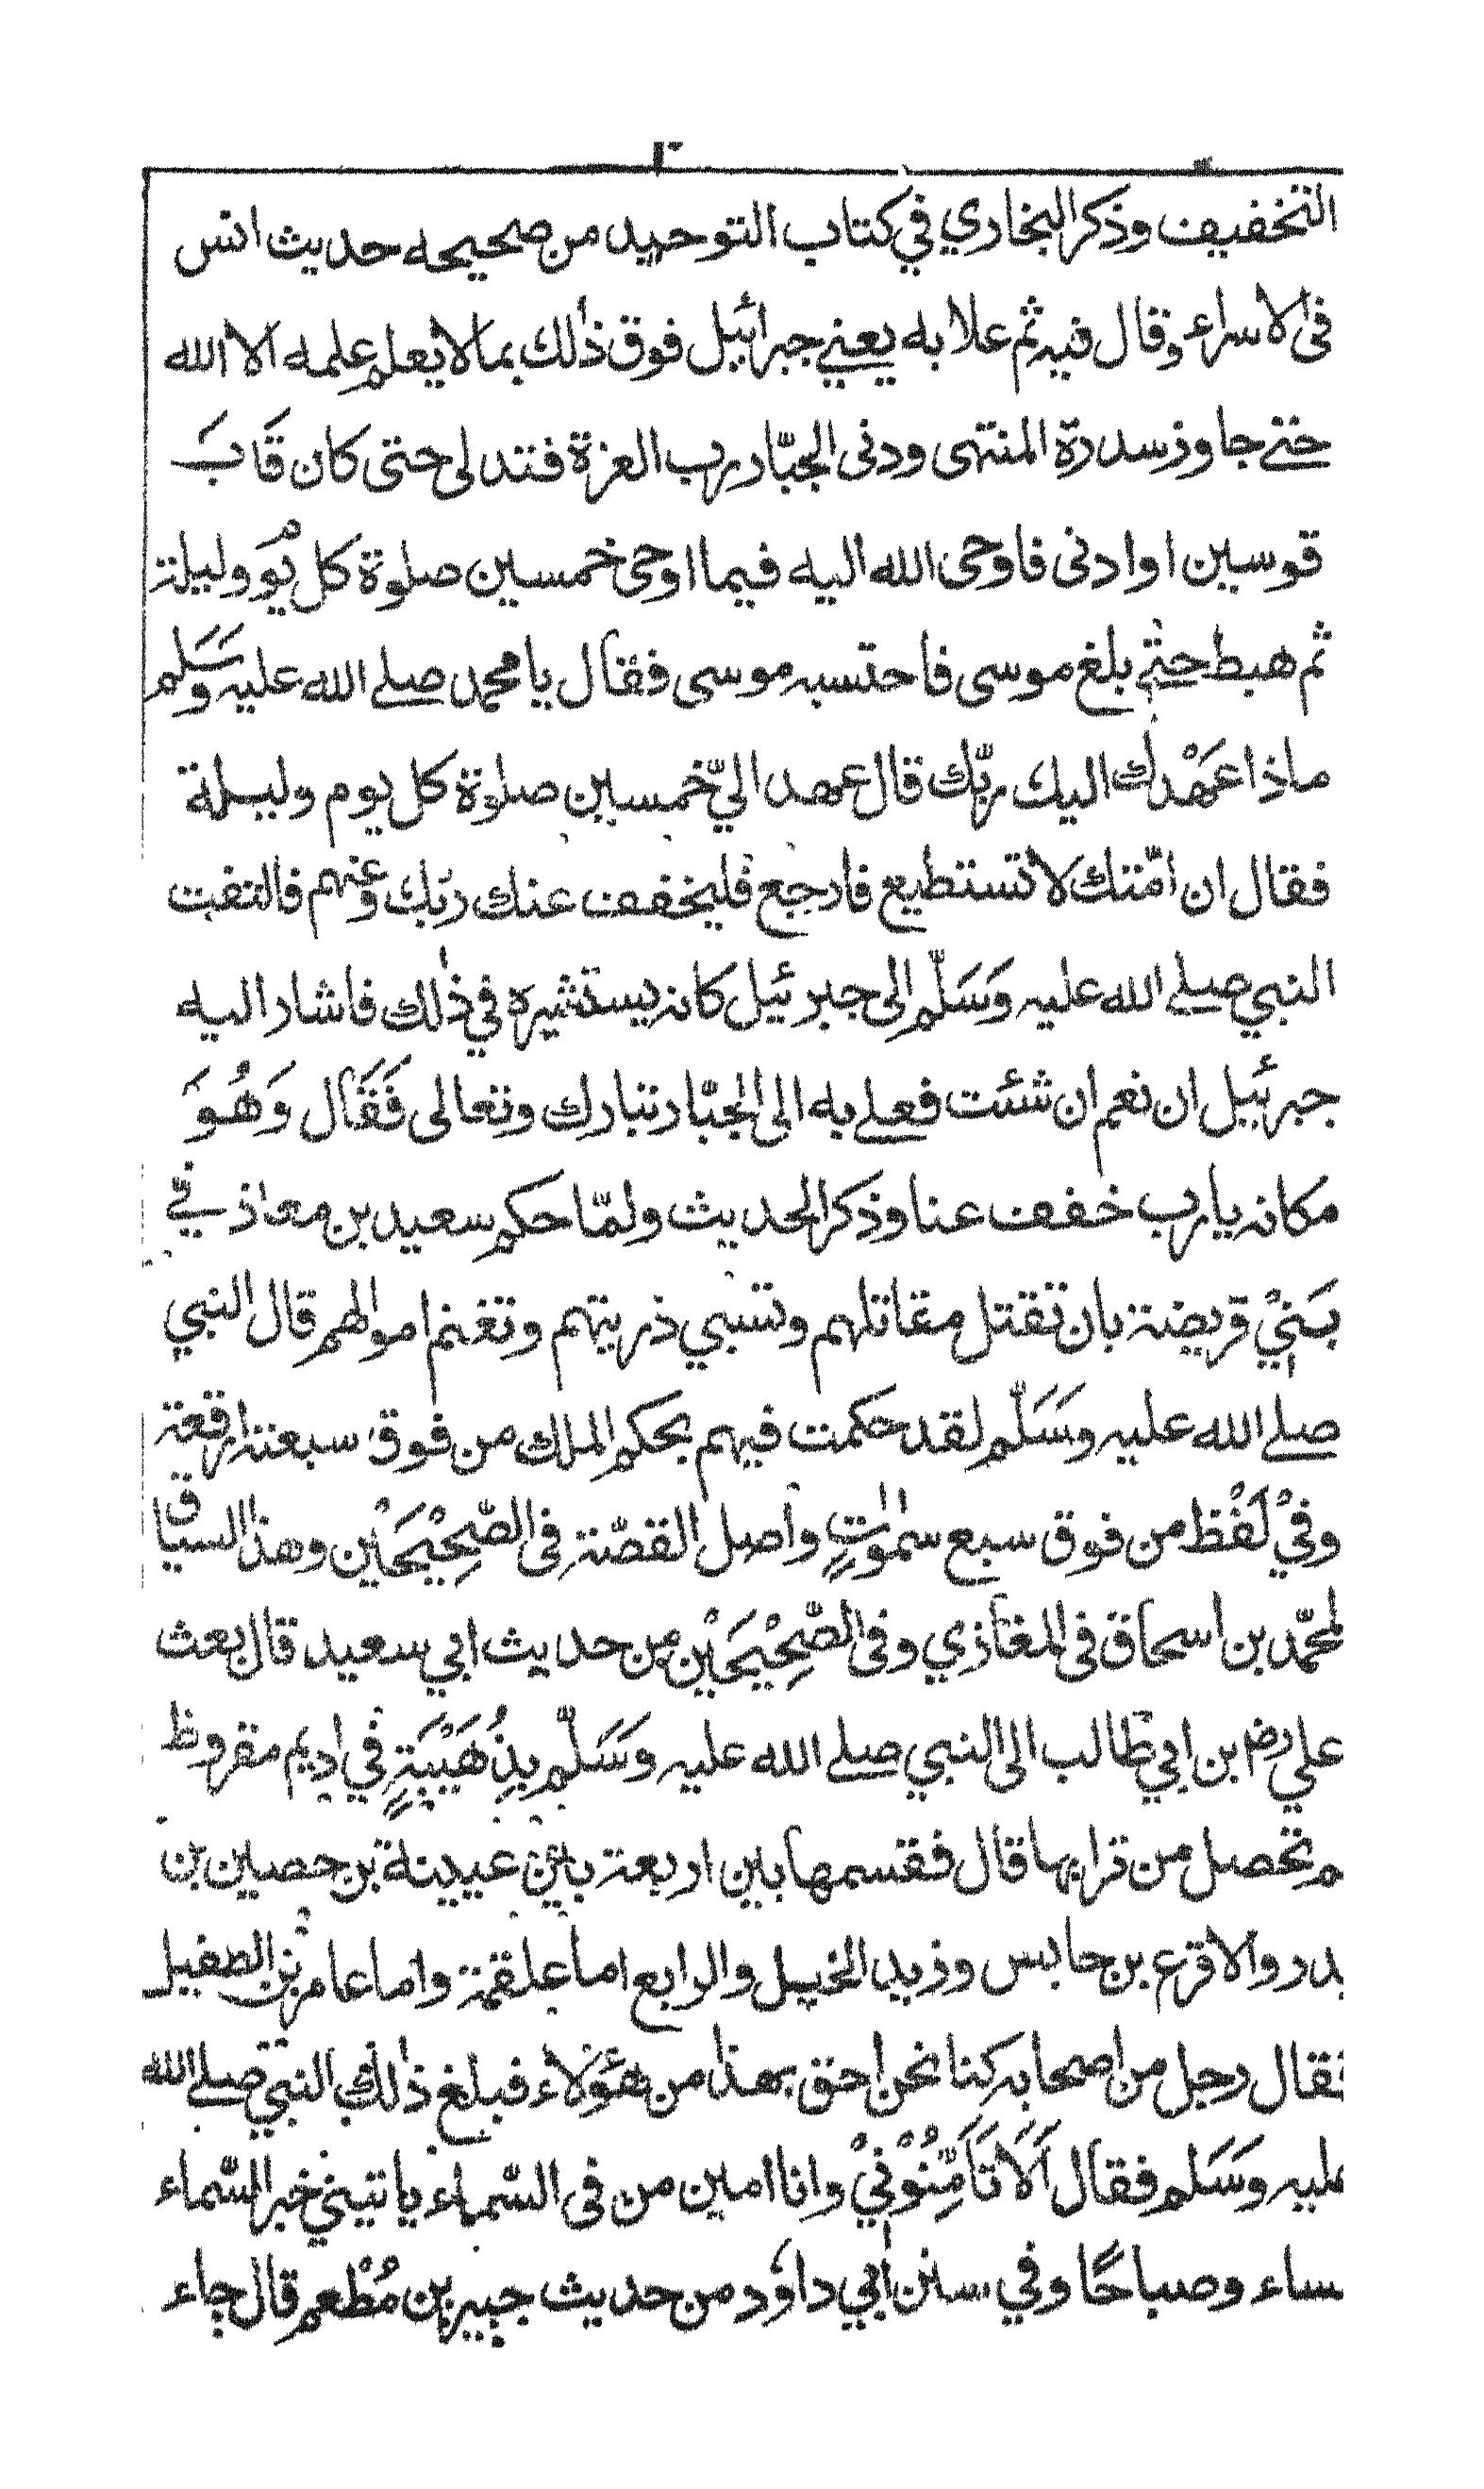 التخفيف وذكر البخاري في كتاب التوحيد من صحيحه حديث انس
فى الاسراء وقال فيه ثم علا به يعني جبرائيل فوق ذلك بما لا يعلم علمه الا الله
حتے جاوز سدرة المنتهى ودنى الجبّار رب العزة فتدلى حتى كان قَابَ
قوسين او ادنى فاوحى الله اليه فيما اوحى خمسين صلوة كل يوم وليلة
ثم هبط حتے بلغ موسى فاحتسبه موسى فقال يا محمد صلے الله عليه وَسَلم
ماذا عَهْدك اليك ربّك قال عهد اليّ خمسين صلوة كل يوم وليلة
فقال ان امّتك لا تستطيع فارجع فليخفف عنك ربّك وعنهم فالتفت
النبي صلے الله عليه وَسَلّم الى جبرئيل كانه يستشيره في ذلك فاشار اليه
جبرئيل ان نعم ان شئت فعلے به الى الجبّار تبارك وتعالى فَقَال وَهُوَ
مكانه يا رب خفف عنا وذكر الحديث ولمّا حكم سعيد بن معاذ في
بَنيْ قريضة بان تقتل مقاتلهم وتسبي ذريتهم وتغنم اموالهم قال النبي
صلے الله عليه وسَلّم لقد حكمت فيهم بحكم الملك من فوق سبعة ارقعة
وفيْ لَفْظ من فوق سبع سموٰتٍ واصل القصّة فى الصّحِيْحَيْن وهذا السياق
لمحمّد بن اسحاق فى المغازي وفى الصّحِيْحَيْن من حديث ابي سعيد قال بعث
علي رض بن ابي طالب الى النبي صلے الله عليه وَسَلّم بِذُهَيْبَةٍ في اديم مقروظ
م تحصل من ترابها قال فقسمها بين اربعة بين عيينة بن حصين بن
بدر والاقرع بن حابس وزيد الخيل والرابع اما علقمة واما عامر بن الطفيل
فقال رجل من اصحابه كنا نحن احق بهذا من هؤلاء فبلغ ذلك النبي صلے الله
عليه وَسَلم فقال اَلَا تَاَمَّنُوْنيْ وانا امين من فى السّماء ياتيني خبر السّماء
مساء وصباحًا وفي سنن ابي داود من حديث جبير بن مُطْعم قال جاء